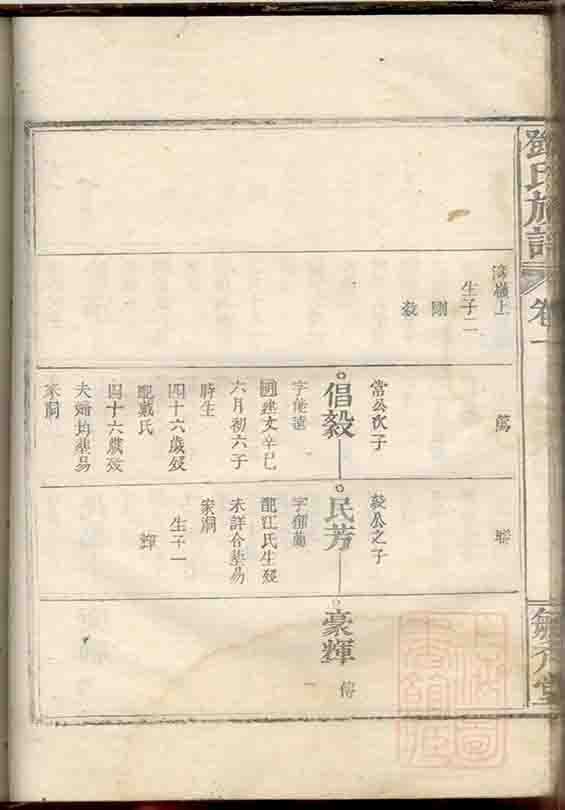 鄧氏族譜
卷一
無介堂
嶺上
生子二
剛
毅
萬
常公次子
倡毅
字能遠
明建文辛巳
六月初六子
時生
四十六歲歿
配戴氏
四十六歲歿
夫婦均塟易
家洞
聯
毅公之子
民芳
字
配江氏生歿
未詳合塟易
家洞
生子一
輝
豪輝
傳